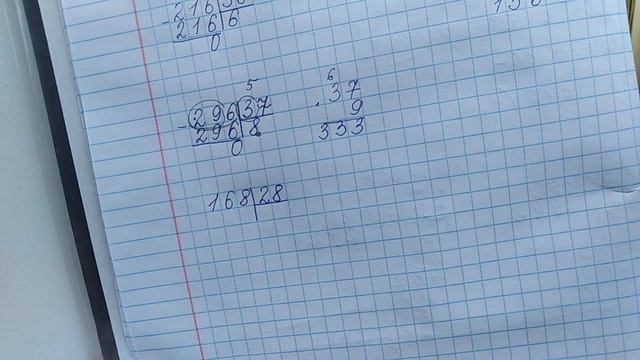 - 216
216 6
0
5
- 296 37
296 8
0
6
. 37
9
333
168 28